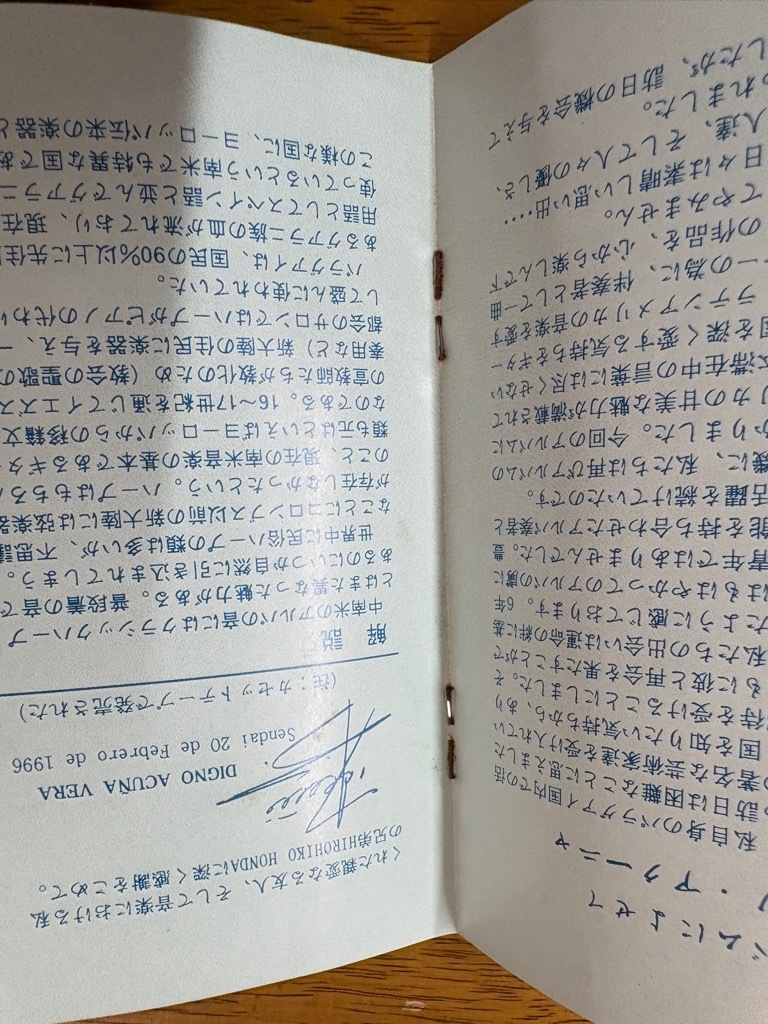 バムによせて
ノ・アクーニャ
私自身のパラグアイ国内での活
訪日は困難なことに思えました
の著名な芸術家達を受け入れてい
国を知りたい気持ちから、あり
待を受けることにしました。そ
もに彼と再会を果たすことがで
私たちの出会いは運命の絆に基
たように感じております。6年
はもはやかつてのアルパの虜に
青年ではありませんでした。豊
能を持ち合わせたアルパ奏者と
活躍を続けていたのです。
機に、私たちは再びアルバムの
かりました。今回のアルバムに
リカの甘美な魅力が満載されて
本滞在中の言葉には尽くせない
国を深く愛する気持ちをギター
ラテンアメリカの音楽を愛す
一の為に、伴奏者として一曲
の作品を、心から楽しんで下
てやみません。
日々は素晴しい思い出....
人達、そして人々の優しさ、
われました。
したが、訪日の機会を与えて
くれた親愛なる友人、そして音楽における私
の兄弟HIROHIKO HONDAに深く感謝をこめて。
DIGNO ACUNA VERA
Sendai 20 de Febrero de 1996
(注：カセットテープで発売された)
解 説
中南米のアルパの音にはクラシックハープ
とはまた異なった魅力がある。普段着の音で
あるのにいつか自然に引き込まれてしまう。
世界中に民俗ハープの類は多いが、不思議
なことにコロンブス以前の新大陸には弦楽器
が存在しなかったという。ハープはもちろん
のこと、現在の南米音楽の基本であるギター
類も元はといえばヨーロッパからの移籍文
なのである。16〜17世紀を通じてイエズス
の宣教師たちが教化のため(教会の聖歌の
奏用など)新大陸の住民に楽器を与え、一
都会のサロンではハープがピアノの代わり
して盛んに使われていた。
パラグアイは、国民の90%以上に先住
あるグアラニ族の血が流れており、現在
用語としてスペイン語と並んでグアラニ
使っているという南米でも特異な国であ
この様な国に、ヨーロッパ伝来の楽器と